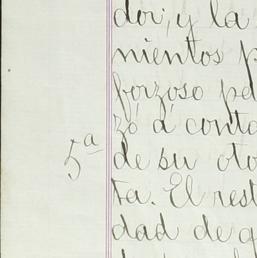 dor, y la
nientos p
forzoso pa
zó á conta
5ª de su oto
ta. El rest
dad de q